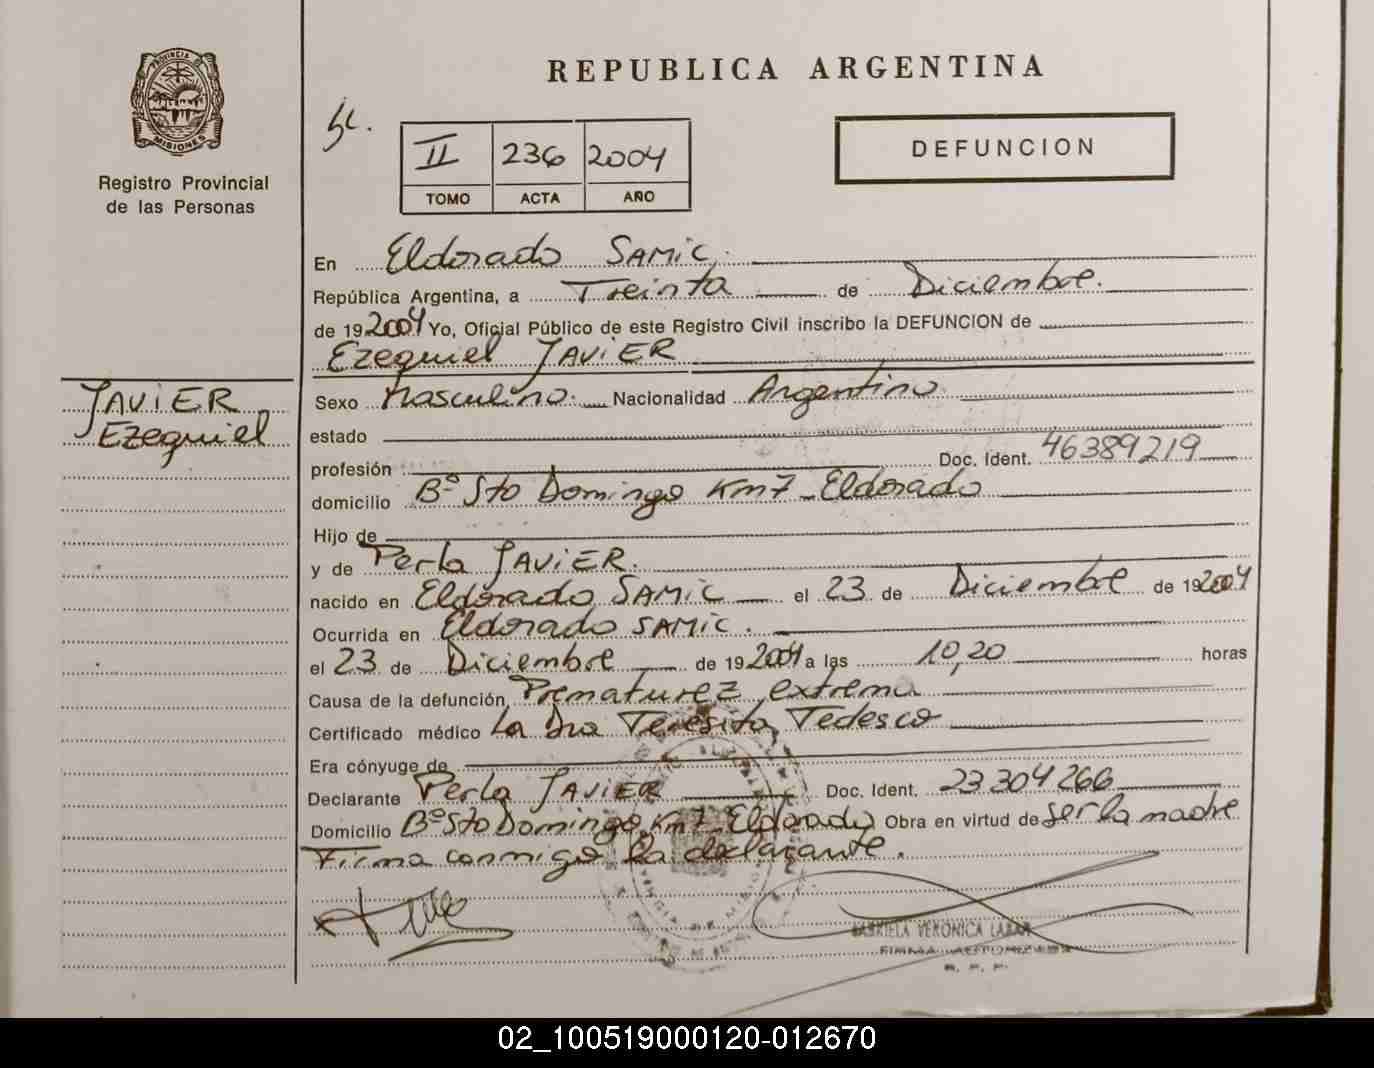 REPUBLICA ARGENTINA
PROVINCIA DE
MISIONES
Registro Provincial
de las Personas
II 236 2004
TOMO ACTA AÑO
DEFUNCION
En Eldorado SAMiC.
República Argentina, a Treinta de Diciembre.
de 19 2004 Yo, Oficial Público de este Registro Civil inscribo la DEFUNCION de
Ezequiel JAViER
JAViER
Ezequiel
Sexo Masculino. Nacionalidad Argentino
estado
profesión Doc. Ident. 46389219
domicilio Bº Sto Domingo Km 7 Eldorado
Hijo de
y de Perla JAViER.
nacido en Eldorado SAMiC el 23 de Diciembre de 19 2004
Ocurrida en Eldorado SAMiC.
el 23 de Diciembre de 19 2004 a las 10,20 horas
Causa de la defunción Prematurez extrema
Certificado médico La Dra Teresita Tedesco
Era cónyuge de
Declarante Perla JAViER Doc. Ident. 23.304.266
Domicilio Bº Sto Domingo Km 7 Eldorado Obra en virtud de ser la madre
Firma conmigo la declarante.
GABRIELA VERONICA
FIRMA AUTORIZADA
R. P. P.
02_100519000120-012670